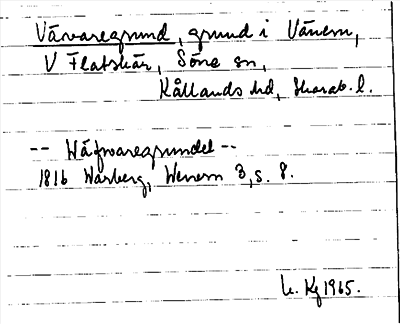 Vävaregrund, grund i Vänern,
V Flatskär, Söne sn,
Kållands hd, Skarab. l.
-- Wäfwaregrundet --
1816 Warberg, Wenern 3, s. 8.
Kg 1965.